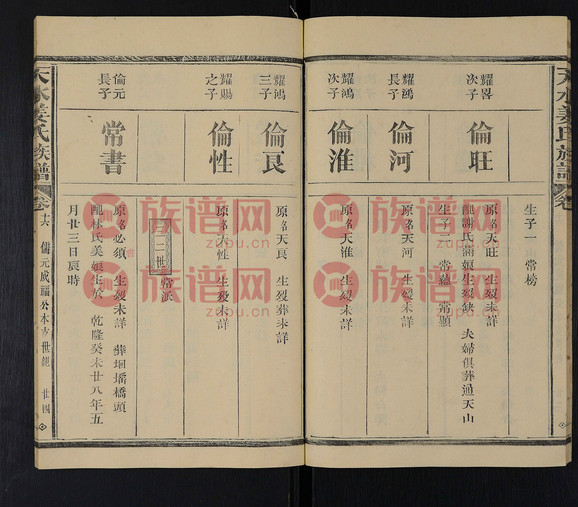 天水姜氏族譜
卷
生子一 常榜
耀畧次子
倫旺
原名天旺 生歿未詳
配謝氏滿娘生歿缺 夫婦俱葬通天山
生子二 常繡 常顯
耀鴻長子
倫河
原名天河 生歿未詳
耀鴻次子
倫淮
原名天淮 生歿未詳
耀鴻三子
倫艮
原名天艮 生歿葬未詳
耀賜之子
倫性
原名天性 生歿未詳
世
常派
倫元長子
常書
原名必須 生歿未詳 葬垇墦橋頭
配林氏美娘生於 乾隆癸未廿八年五
月廿三日辰時
天水姜氏族譜
卷
十六 儒元威福公本支世系 廿四
族谱网
zupu.cn
族谱网
zupu.cn
族谱网
zupu.cn
族谱网
zupu.cn